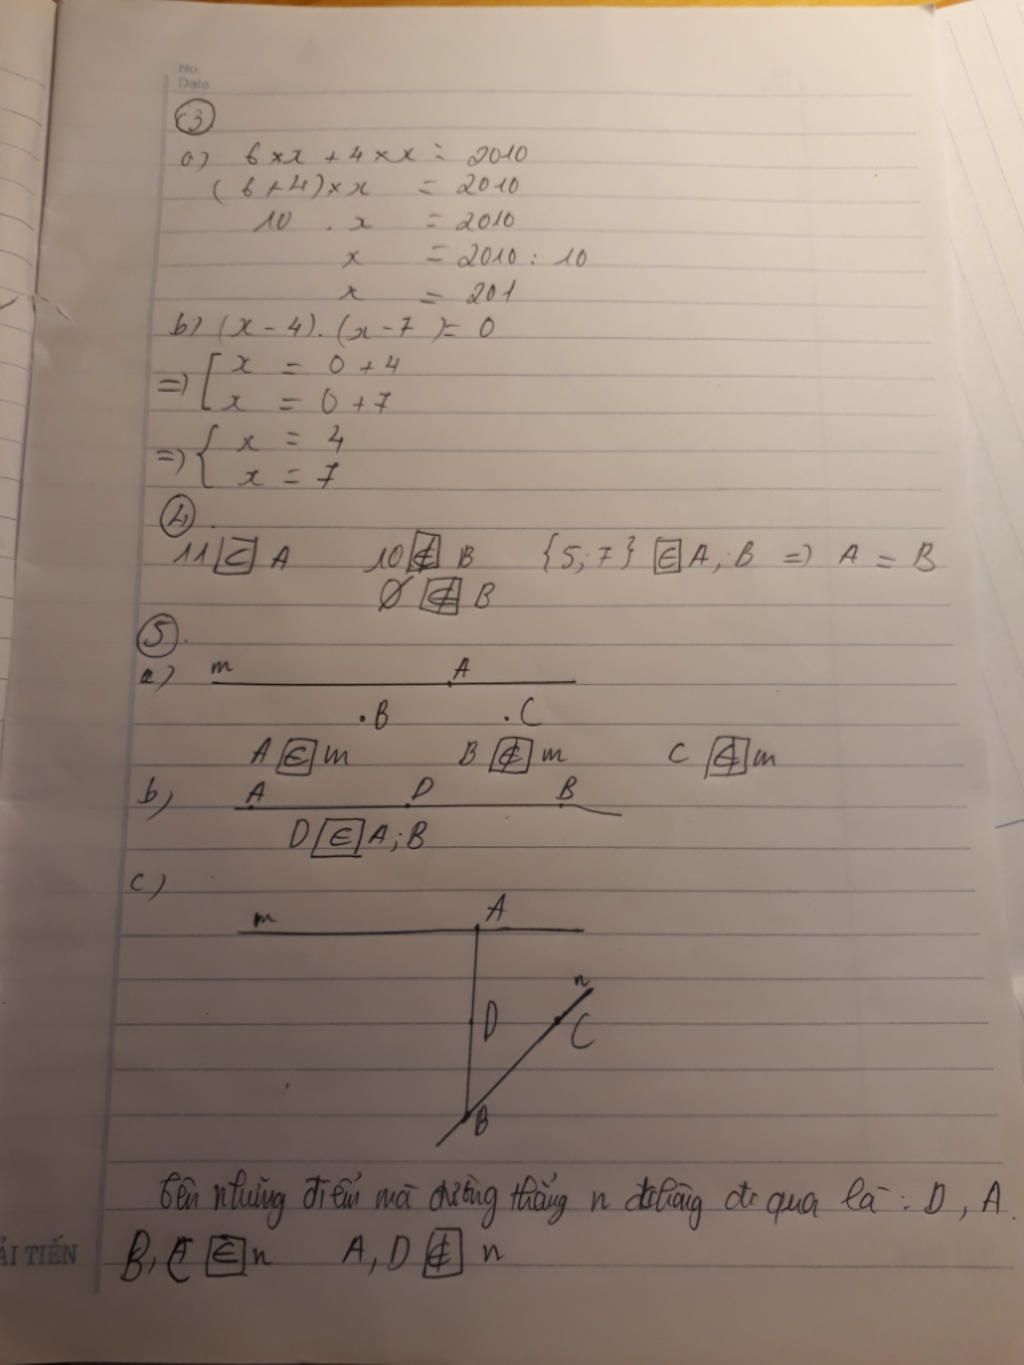 No.
Date
3
a) 6 × x + 4 × x = 2010
(6 + 4) × x = 2010
10 . x = 2010
x = 2010 : 10
x = 201
b) (x - 4) . (x - 7) = 0
=> [ x = 0 + 4
x = 0 + 7
=> { x = 4
x = 7
4
11 ⊂ A 10 ∉ B {5; 7} ∈ A, B => A = B
Ø ⊄ B
5.
a) m A
. B . C
A ∈ m B ∉ m C ∉ m
b) A D B
D ∈ A; B
c)
m A
n
D C
B
tên những điểm mà đường thẳng n không đi qua là : D, A.
B, C ∈ n A, D ∉ n
ẢI TIẾN